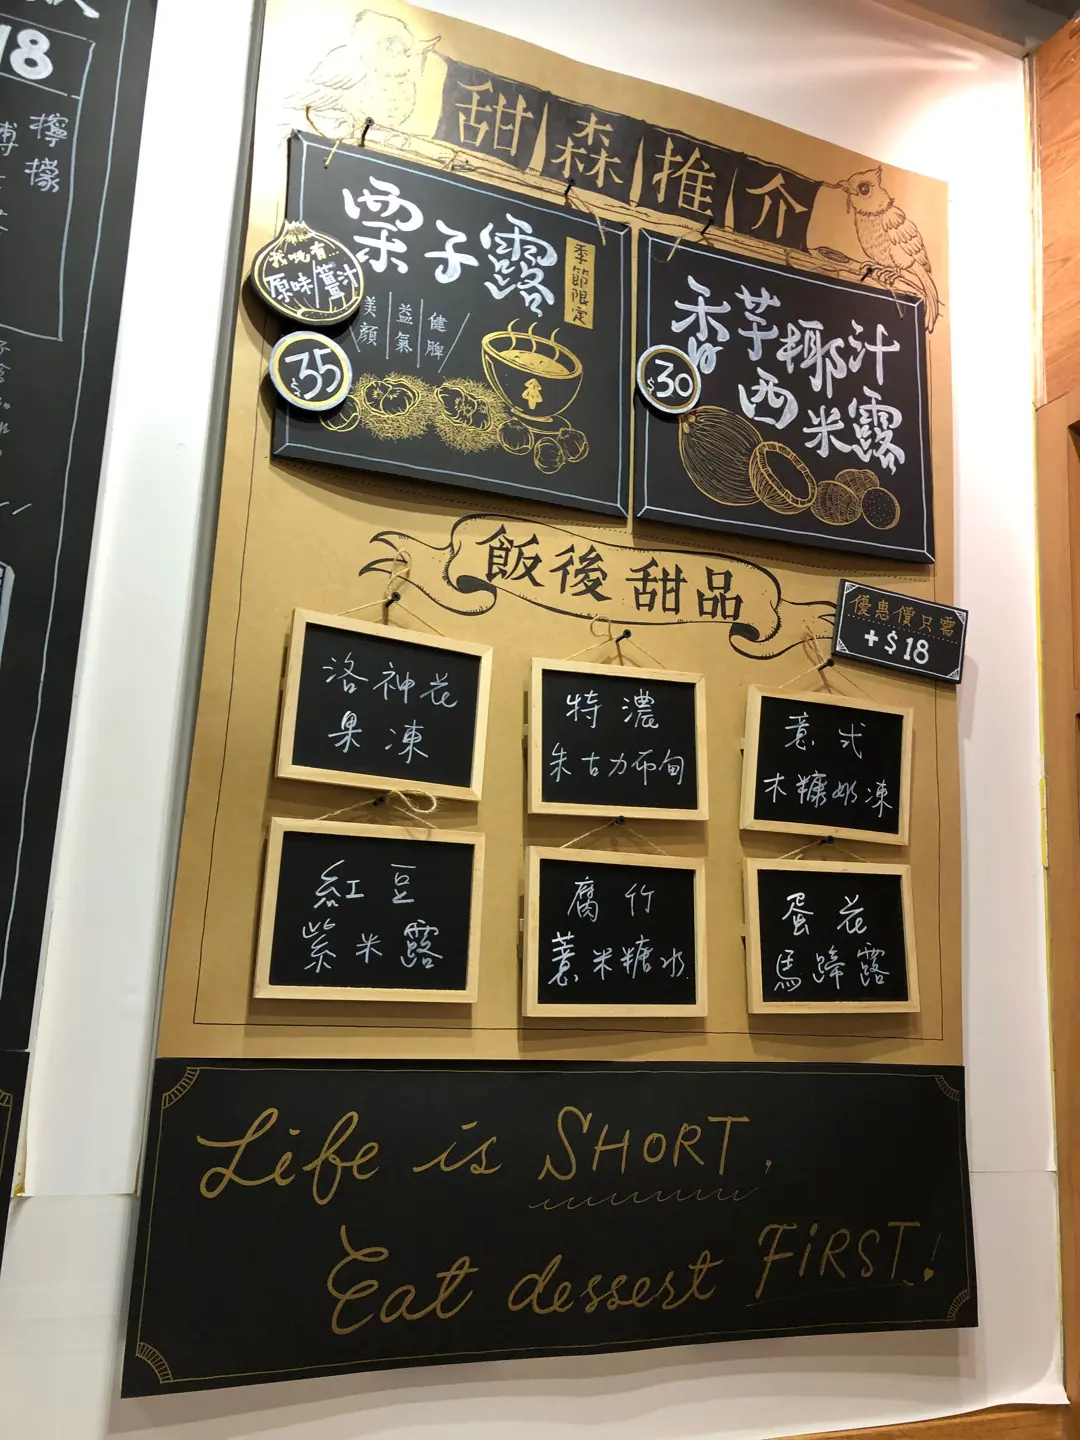 18
檸
檬
甜森推介
栗子露
季節限定
我哋有...
原味/薑汁
美顏
益氣
健脾
$35
香芋椰汁
西米露
$30
飯後甜品
優惠價只需
+$18
洛神花
果凍
特濃
朱古力布甸
意式
木糠奶凍
紅豆
紫米露
腐竹
薏米糖水
蛋花
馬蹄露
Life is SHORT,
Eat dessert FiRST!